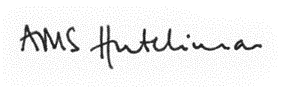 AMS Hutchinson